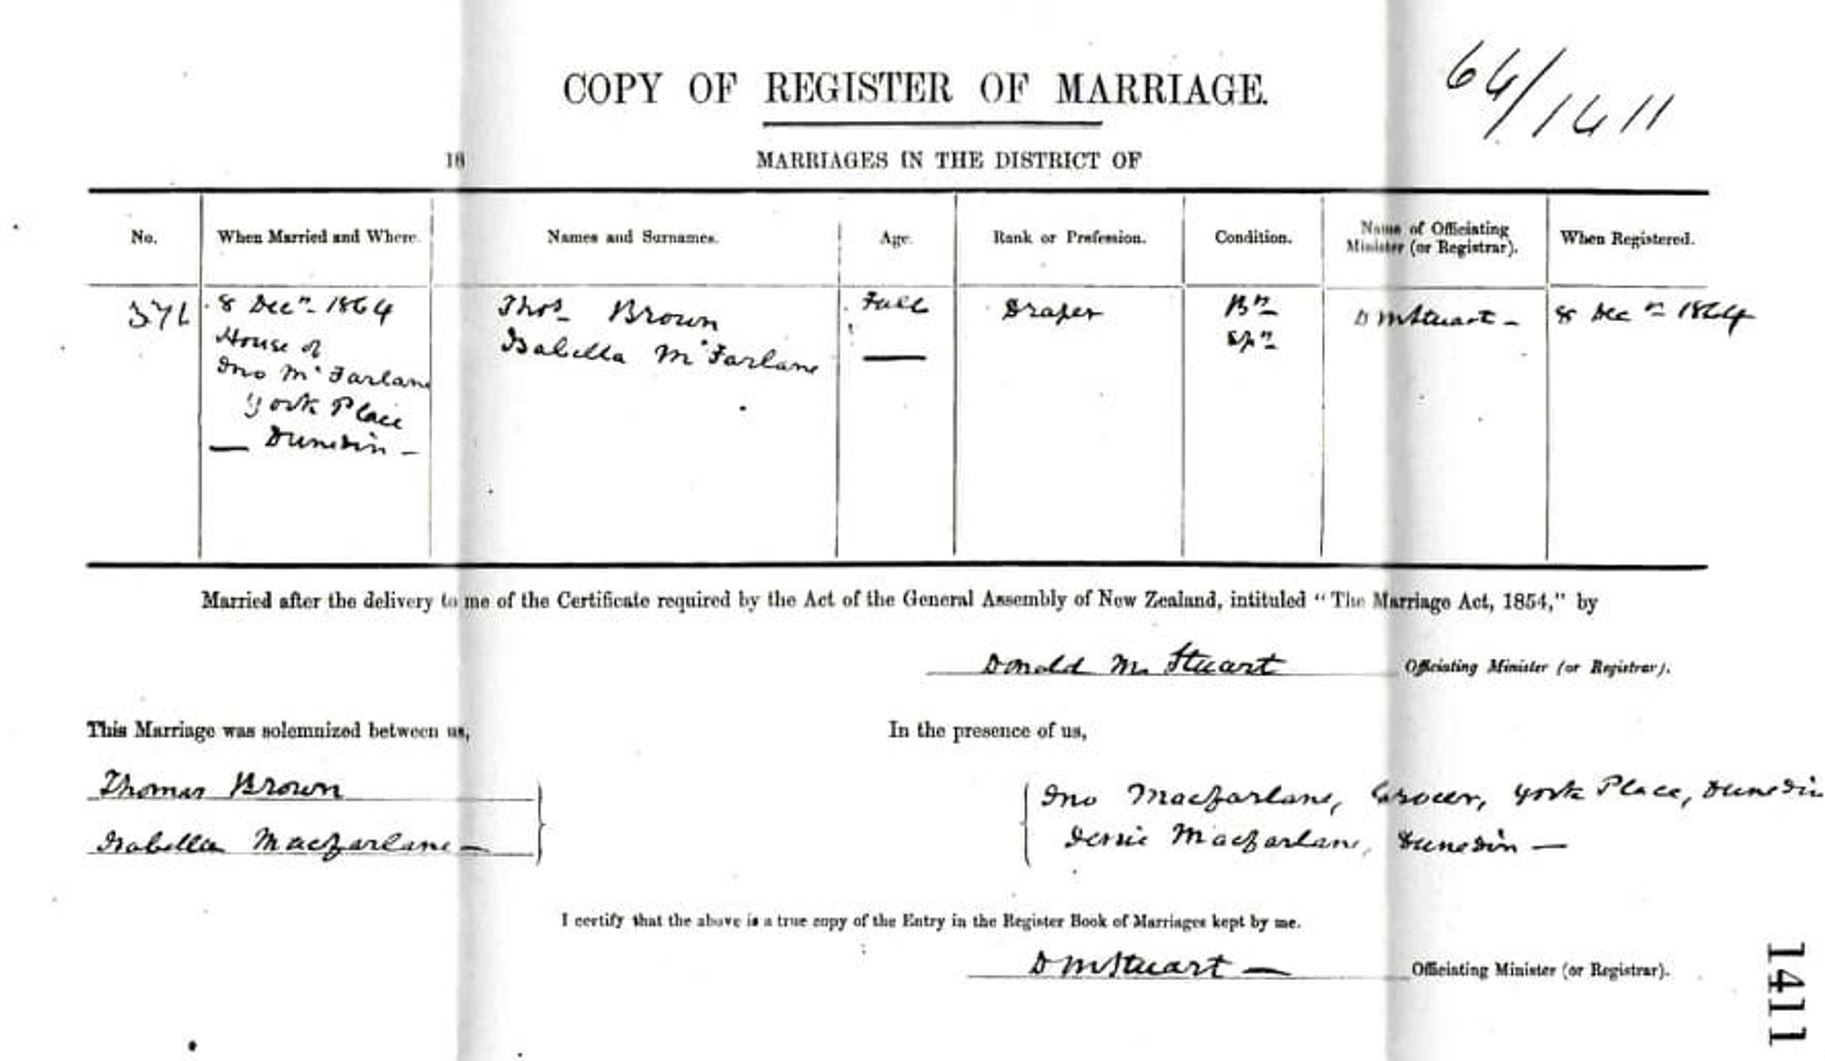 COPY OF REGISTER OF MARRIAGE.
64/1411
18
MARRIAGES IN THE DISTRICT OF
No.
When Married and Where.
Names and Surnames.
Age.
Rank or Profession.
Condition.
Name of Officiating
Minister (or Registrar).
When Registered.
371
8 Decr. 1864
House of
Jno McFarlane
York Place
— Dunedin —
Thos. Brown
Isabella McFarlane
Full
—
Draper
Br.
Spr.
D M Stuart —
8 Decr. 1864
Married after the delivery to me of the Certificate required by the Act of the General Assembly of New Zealand, intituled "The Marriage Act, 1854," by
Donald M. Stuart
Officiating Minister (or Registrar).
This Marriage was solemnized between us,
In the presence of us,
Thomas Brown
Isabella Macfarlane —
Jno Macfarlane, Grocer, York Place, Dunedin
Jessie Macfarlane, Dunedin —
I certify that the above is a true copy of the Entry in the Register Book of Marriages kept by me.
D M Stuart —
Officiating Minister (or Registrar).
1411